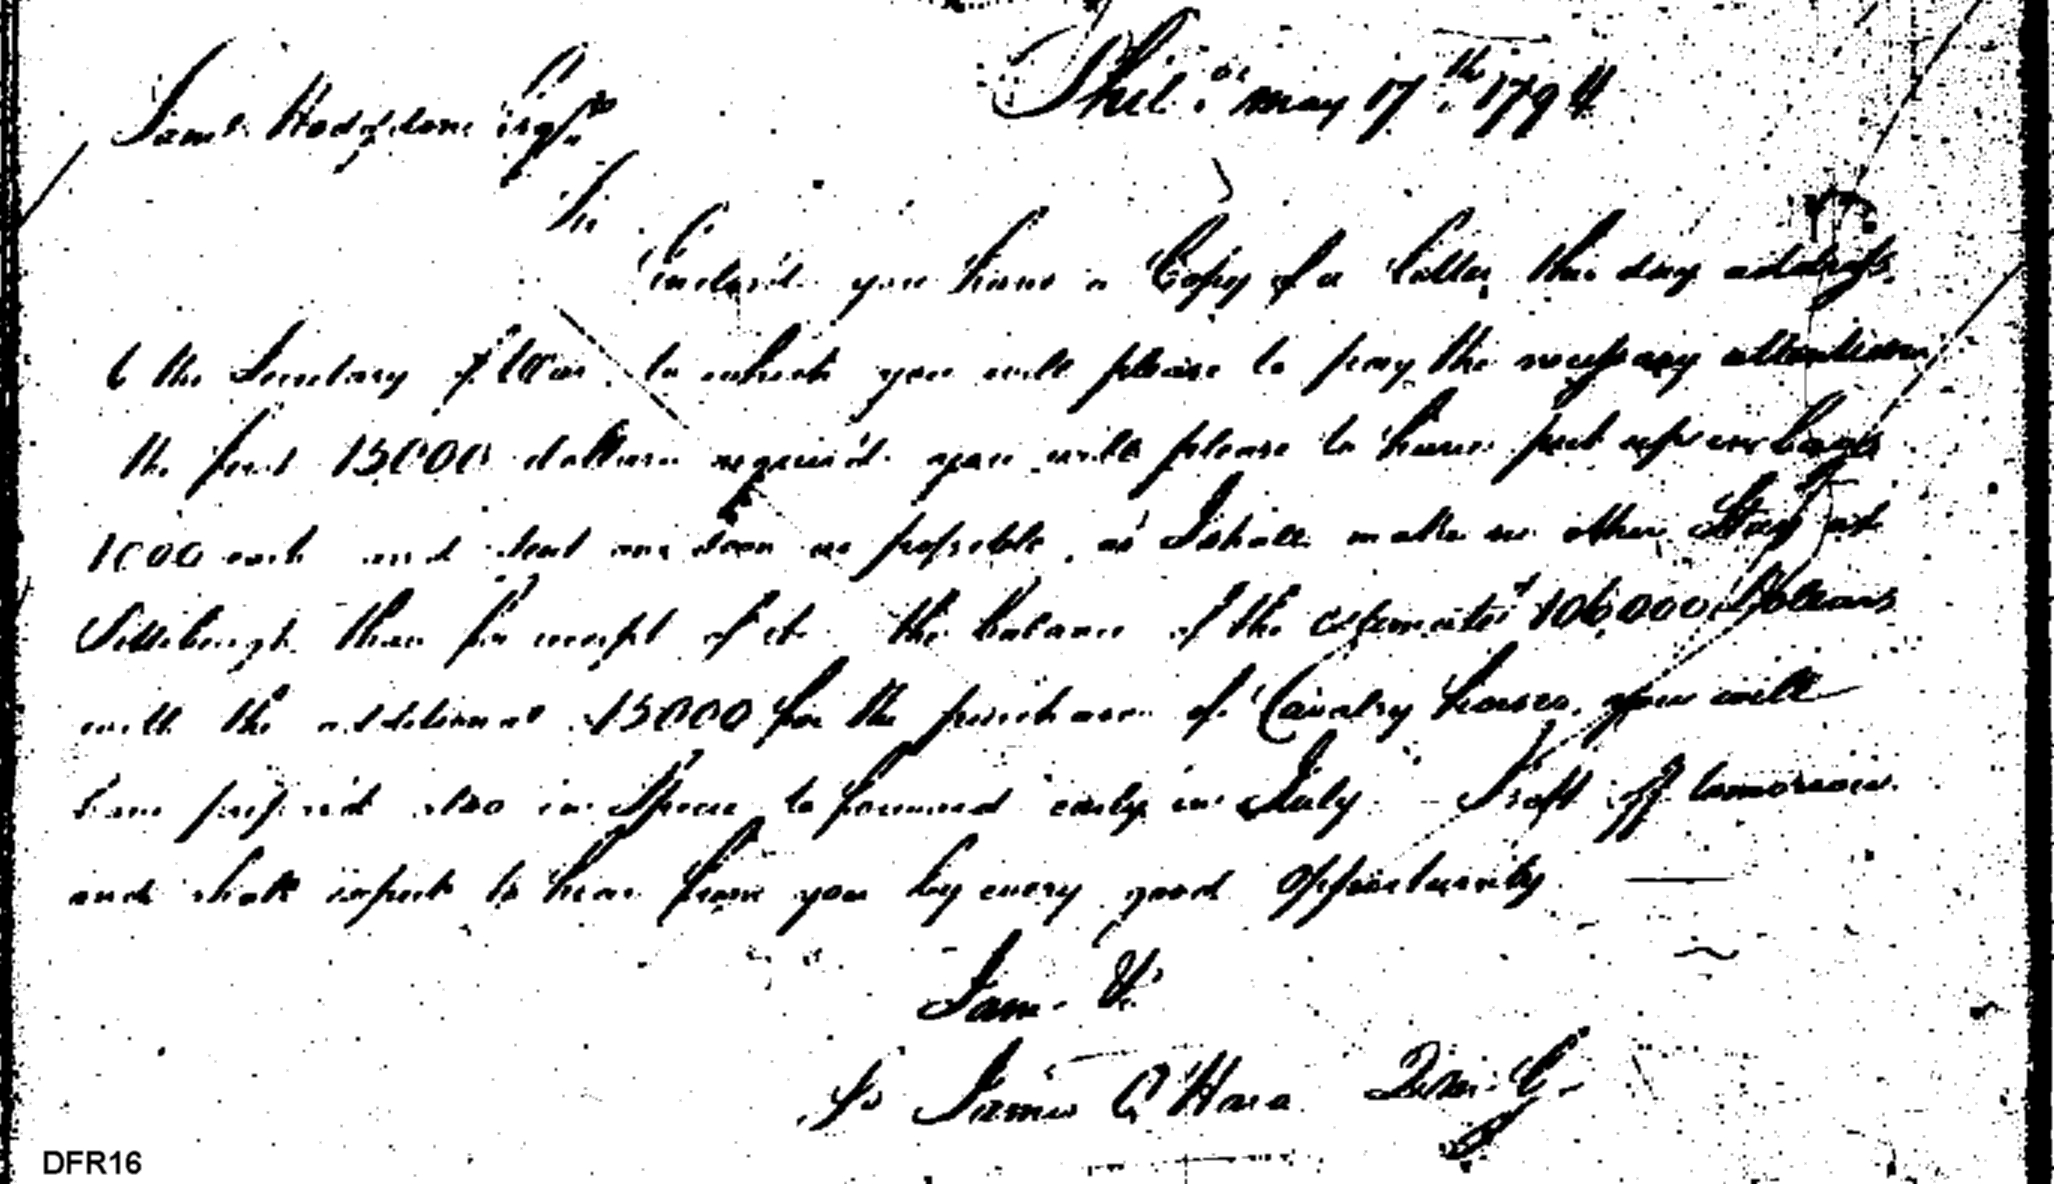 Phil.a may 17.th 1794
Saml. Hodgdon Esqr.
Sir
Enclos'd you have a Copy of a Letter this day address'd
to the Secretary of War, to which you will please to pay the necessary attention
the first 15000 dollars requir'd you will please to have put up in bags
1000 each and sent on as soon as possible, as I shall make no other Stay at
Pittsburgh than for receipt of it. the balance of the estimated 106,000 Dollars
with the additional 15000 for the purchase of Cavalry horses, you will
have prepar'd also in Specie to forward early in July. I sett off tomorrow
and shall expect to hear from you by every good opportunity
I am &c
James O'Hara Q M G
DFR16